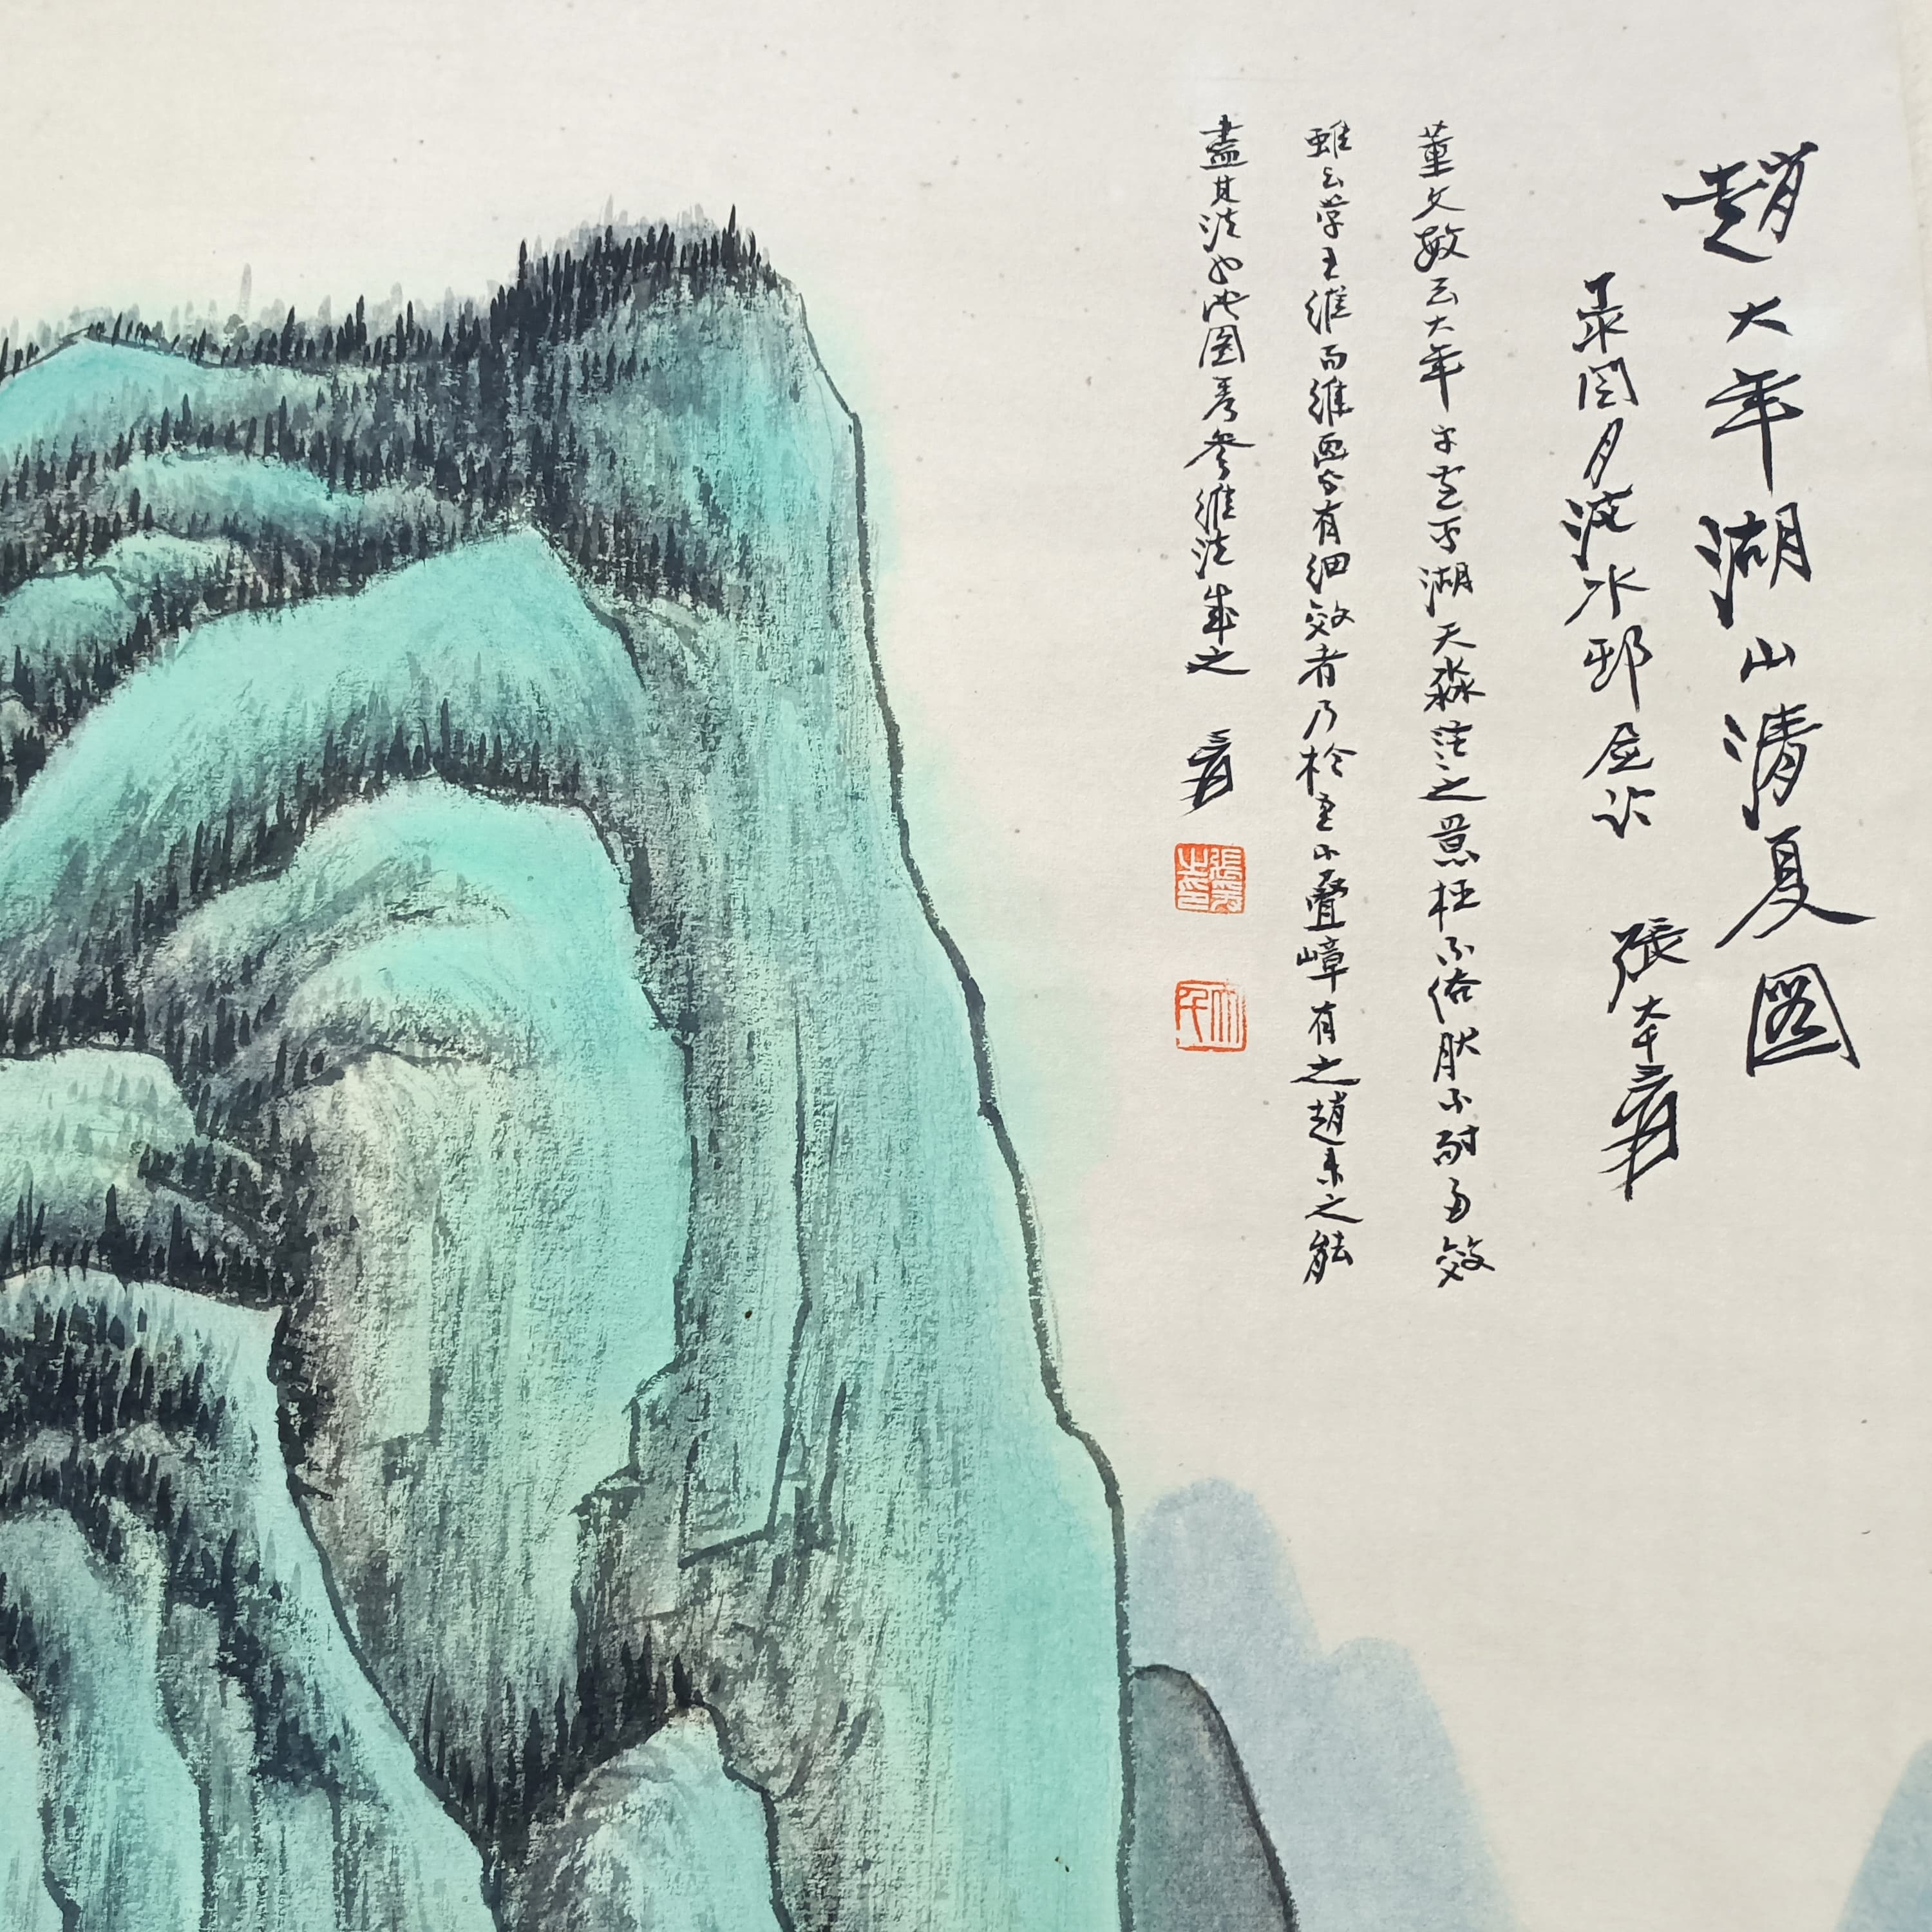 趙大年湖山清夏圖
月波水邨 張大千爰
董文敏云大年平遠寫湖天淼茫之意極不俗然不耐多皴
雖云學王維而維畫皆有細皴者乃於重山疊嶂有之趙未之能
盡其法也此图畧參維法成之 爰
張爰之印